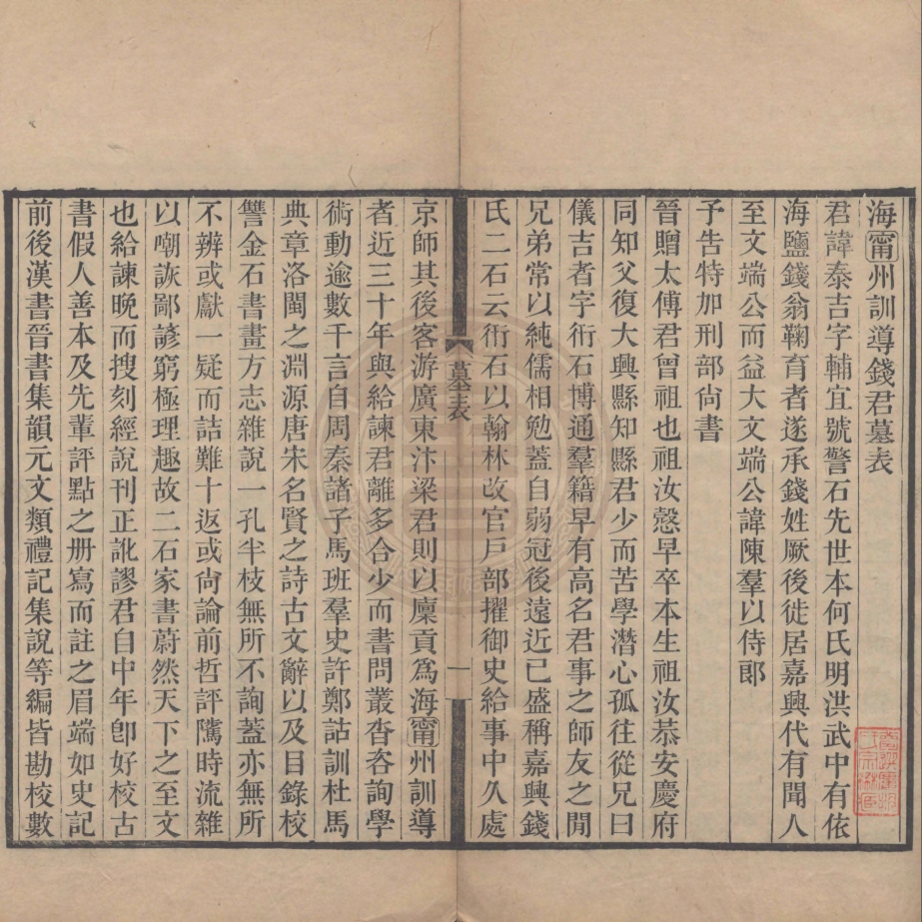 海甯州訓導錢君墓表
君諱泰吉字輔宜號警石先世本何氏明洪武中有依
海鹽錢翁鞠育者遂承錢姓厥後徙居嘉興代有聞人
至文端公而益大文端公諱陳羣以侍郎
予告特加刑部尚書
晉贈太傅君曾祖也祖汝愨早卒本生祖汝恭安慶府
同知父復大興縣知縣君少而苦學潛心孤往從兄曰
儀吉者字衎石博通羣籍早有高名君事之師友之閒
兄弟常以純儒相勉蓋自弱冠後遠近已盛稱嘉興錢
氏二石云衎石以翰林改官戶部擢御史給事中久處
墓表
一
京師其後客游廣東汴梁君則以廩貢爲海甯州訓導
者近三十年與給諫君離多合少而書問叢沓咨詢學
術動逾數千言自周秦諸子馬班羣史許鄭詁訓杜馬
典章洛閩之淵源唐宋名賢之詩古文辭以及目錄校
讐金石書畫方志雜說一孔半枝無所不詢蓋亦無所
不辨或獻一疑而詰難十返或尙論前哲評騭時流雜
以嘲詼鄙諺窮極理趣故二石家書蔚然天下之至文
也給諫晚而搜刻經說刊正訛謬君自中年卽好校古
書假人善本及先輩評點之册寫而註之眉端如史記
前後漢書晉書集韻元文類禮記集說等編皆勘校數